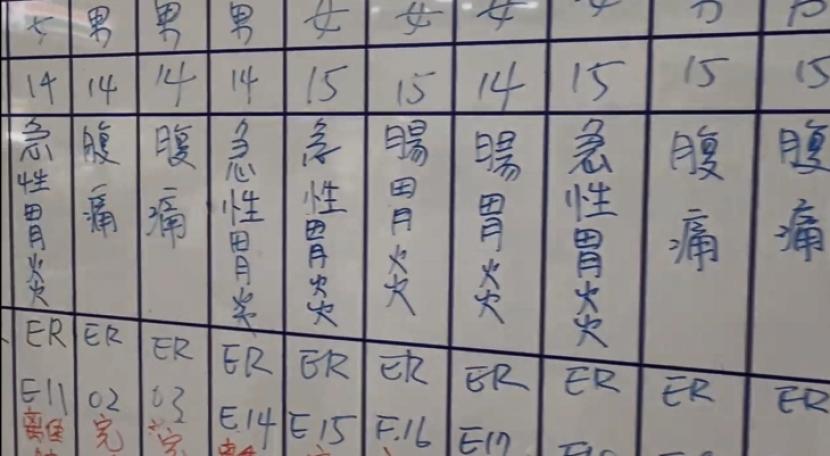 女 男 男 男 女 女 女 女 男 男
14 14 14 14 15 15 14 15 15 15
急性胃炎 腹痛 腹痛 急性胃炎 急性胃炎 腸胃炎 腸胃炎 急性胃炎 腹痛 腹痛
ER ER ER ER ER ER ER ER ER ER
E11 02 03 E14 E15 E16 E17
完 完